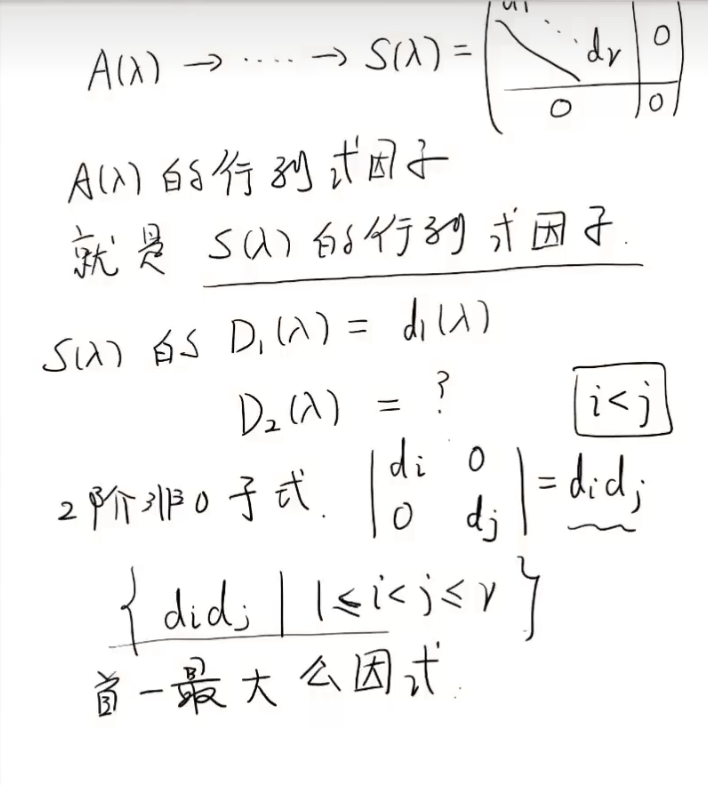 A(λ) → ‥‥ → S(λ) = ( d₁ ⋱ dᵣ | 0 / 0 | 0 )
A(λ) 的行列式因子
就是 S(λ) 的行列式因子.
S(λ) 的 D₁(λ) = d₁(λ)
D₂(λ) = ?
i<j
2阶非0子式. | dᵢ 0 / 0 dⱼ | = dᵢdⱼ
{ dᵢdⱼ | 1≤i<j≤r }
首一最大公因式.